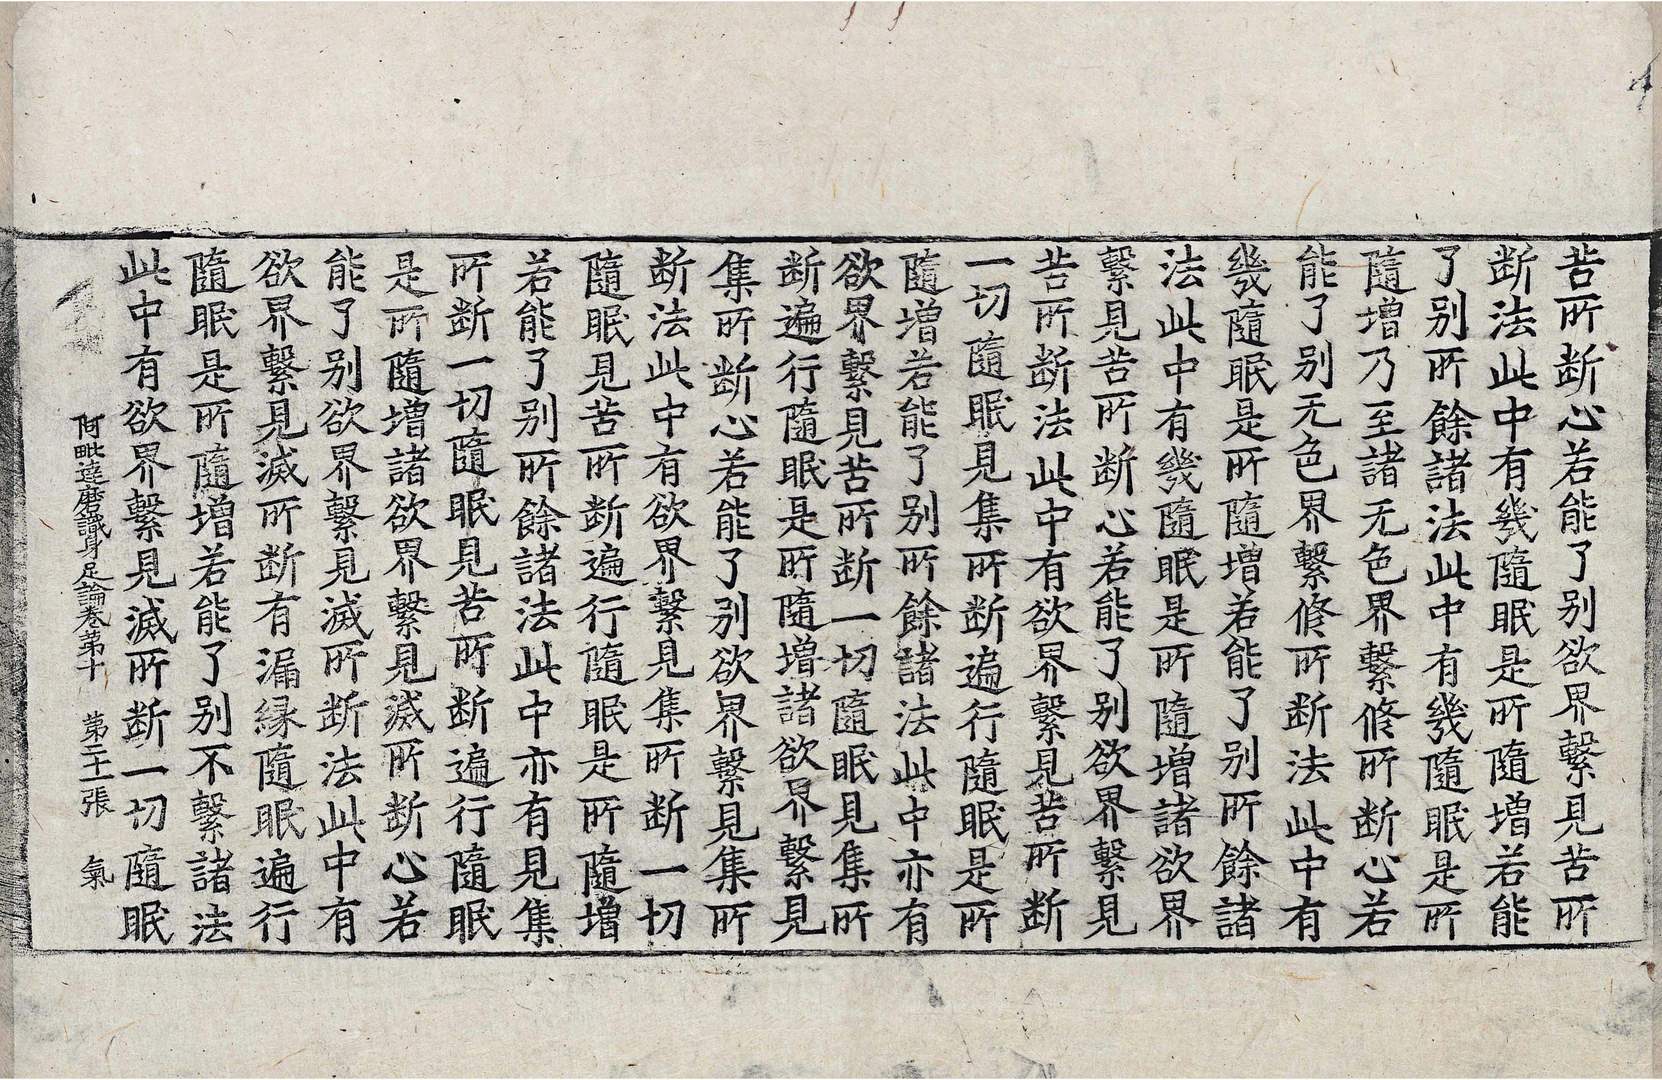 苦所断心若能了别欲界繫見苦所
断法此中有幾隨眠是所隨增若能
了别所餘諸法此中有幾隨眠是所
隨增乃至諸无色界繫修所断心若
能了别无色界繫修所断法此中有
幾隨眠是所隨增若能了别所餘諸
法此中有幾隨眠是所隨增諸欲界
繫見苦所断心若能了别欲界繫見
苦所断法此中有欲界繫見苦所断
一切隨眠見集所断遍行隨眠是所
隨增若能了别所餘諸法此中亦有
欲界繫見苦所断一切隨眠見集所
断遍行隨眠是所隨增諸欲界繫見
集所断心若能了别欲界繫見集所
断法此中有欲界繫見集所断一切
隨眠見苦所断遍行隨眠是所隨增
若能了别所餘諸法此中亦有見集
所断一切隨眠見苦所断遍行隨眠
是所隨增諸欲界繫見滅所断心若
能了别欲界繫見滅所断法此中有
欲界繫見滅所断有漏縁隨眠遍行
隨眠是所隨增若能了别不繫諸法
此中有欲界繫見滅所断一切隨眠
阿毗達磨識身足論卷第十 第二十一張 氣